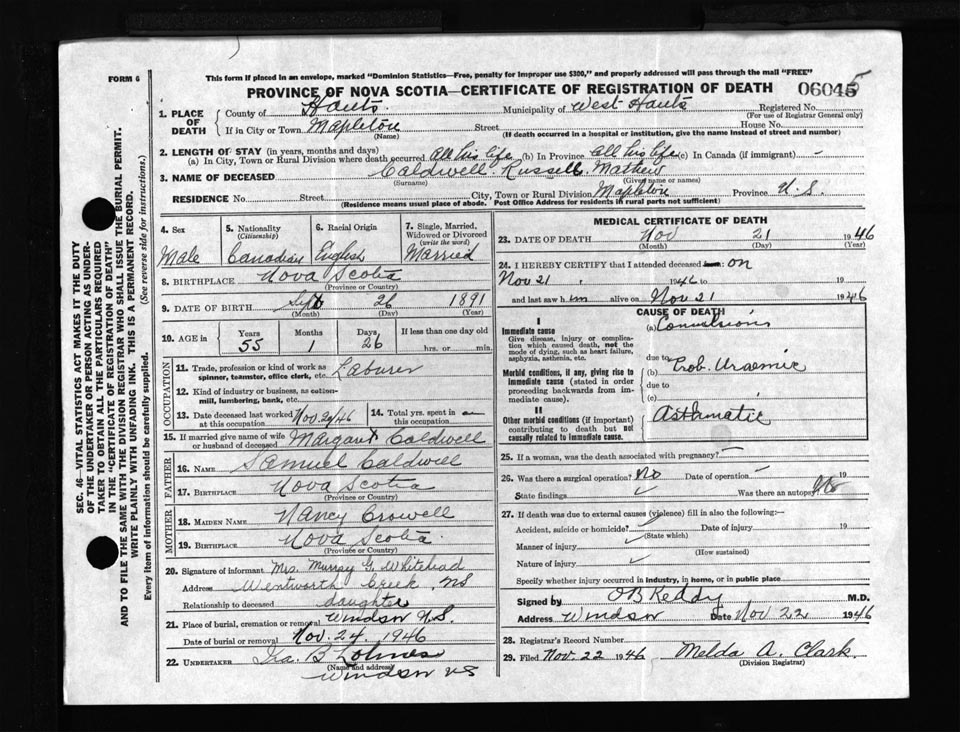 FORM 6
This form if placed in an envelope, marked "Dominion Statistics—Free, penalty for improper use $300," and properly addressed will pass through the mail "FREE"
PROVINCE OF NOVA SCOTIA—CERTIFICATE OF REGISTRATION OF DEATH
06045
5
1. PLACE OF DEATH
County of Hants Municipality of West Hants Registered No.
(For use of Registrar General only)
If in City or Town Mapleton Street House No.
(Name) (If death occurred in a hospital or institution, give the name instead of street and number)
2. LENGTH OF STAY (in years, months and days)
(a) In City, Town or Rural Division where death occurred All his life (b) In Province All his life (c) In Canada (if immigrant) –
3. NAME OF DECEASED Caldwell Russell Mathew
(Surname) (Given name or names)
RESIDENCE No. Street City, Town or Rural Division Mapleton Province N.S.
(Residence means usual place of abode. Post Office Address for residents in rural parts not sufficient)
4. Sex
Male
5. Nationality
(Citizenship)
Canadian
6. Racial Origin
English
7. Single, Married, Widowed or Divorced
(write the word)
Married
8. BIRTHPLACE Nova Scotia
(Province or Country)
9. DATE OF BIRTH Sept 26 1891
(Month) (Day) (Year)
10. AGE in
Years Months Days If less than one day old
55 1 26 hrs. or min.
OCCUPATION
11. Trade, profession or kind of work as spinner, teamster, office clerk, etc. Laburer
12. Kind of industry or business, as cotton-mill, lumbering, bank, etc.
13. Date deceased last worked at this occupation Nov. 20/46
14. Total yrs. spent in this occupation
15. If married give name of wife or husband of deceased Margaret Caldwell
FATHER
16. NAME Samuel Caldwell
17. BIRTHPLACE Nova Scotia
(Province or Country)
MOTHER
18. MAIDEN NAME Nancy Crowell
19. BIRTHPLACE Nova Scotia
(Province or Country)
20. Signature of informant Mrs. Murray G. Whitehead
Address Wentworth Creek, NS
Relationship to deceased daughter
21. Place of burial, cremation or removal Windsor N.S.
Date of burial or removal Nov. 24. 1946
22. UNDERTAKER Ira. B Lohnes
(Name and address)
Windsor NS
MEDICAL CERTIFICATE OF DEATH
23. DATE OF DEATH Nov 21 1946
(Month) (Day) (Year)
24. I HEREBY CERTIFY that I attended deceased from: on
Nov 21 1946 to 19
and last saw him alive on Nov 21 1946
CAUSE OF DEATH
I
Immediate cause
Give disease, injury or complication which caused death, not the mode of dying, such as heart failure, asphyxia, asthenia, etc.
(a) Convulsions
due to
Morbid conditions, if any, giving rise to immediate cause (stated in order proceeding backwards from immediate cause).
(b) Prob. Uraemic
due to
(c)
II
Other morbid conditions (if important) contributing to death but not causally related to immediate cause.
Asthamatic
25. If a woman, was the death associated with pregnancy? –
26. Was there a surgical operation? No Date of operation – 19
State findings Was there an autopsy No
27. If death was due to external causes (violence) fill in also the following:—
Accident, suicide or homicide? Date of injury 19
(State which)
Manner of injury
(How sustained)
Nature of injury
Specify whether injury occurred in industry, in home, or in public place
Signed by OB Keddy M.D.
Address Windsor Date Nov 22 1946
28. Registrar's Record Number
29. Filed Nov. 22 1946 Melda A. Clark.
(Division Registrar)
SEC. 46—VITAL STATISTICS ACT MAKES IT THE DUTY
OF THE UNDERTAKER OR PERSON ACTING AS UNDER-
TAKER TO OBTAIN ALL THE PARTICULARS REQUIRED
IN THE "CERTIFICATE OF REGISTRATION OF DEATH"
AND TO FILE THE SAME WITH THE DIVISION REGISTRAR WHO SHALL ISSUE THE BURIAL PERMIT.
WRITE PLAINLY WITH UNFADING INK. THIS IS A PERMANENT RECORD.
Every item of information should be carefully supplied. (See reverse side for instructions.)